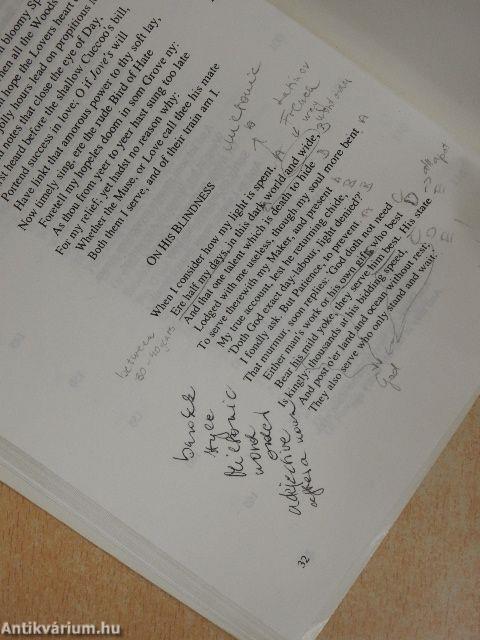 n bloomy Sp
hen all the Woods
h hope the Lovers heart
jolly hours lead on propitious
notes that close the eye of Day,
st heard before the shallow Cuccoo's bill,
Portend success in love; O if Jove's will
Have linkt that amorous power to thy soft lay,
Now timely sing, ere the rude Bird of Hate
Foretell my hopeles doom in som Grove ny:
As thou from yeer to yeer hast sung too late
For my relief; yet hadst no reason why:
Whether the Muse, or Love call thee his mate
Both them I serve, and of their train am I.
miltonic
French
way
ON HIS BLINDNESS
When I consider how my light is spent, A
Ere half my days, in this dark world and wide, B
And that one talent which is death to hide B
Lodged with me useless, though my soul more bent A
To serve therewith my Maker, and present A
My true account, lest he returning chide, B
Doth God exact day-labour, light denied? B
I fondly ask. But Patience, to prevent A
That murmur, soon replies: God doth not need C
Either man's work or his own gifts who best D
Bear his mild yoke, they serve him best. His state E
Is kingly: thousands at his bidding speed C
And post o'er land and ocean without rest; D
They also serve who only stand and wait. E
between
30-40 years
God
barokk
tyee
Miltonic
word
order
adjective
after a noun
32
Antikvárium.hu